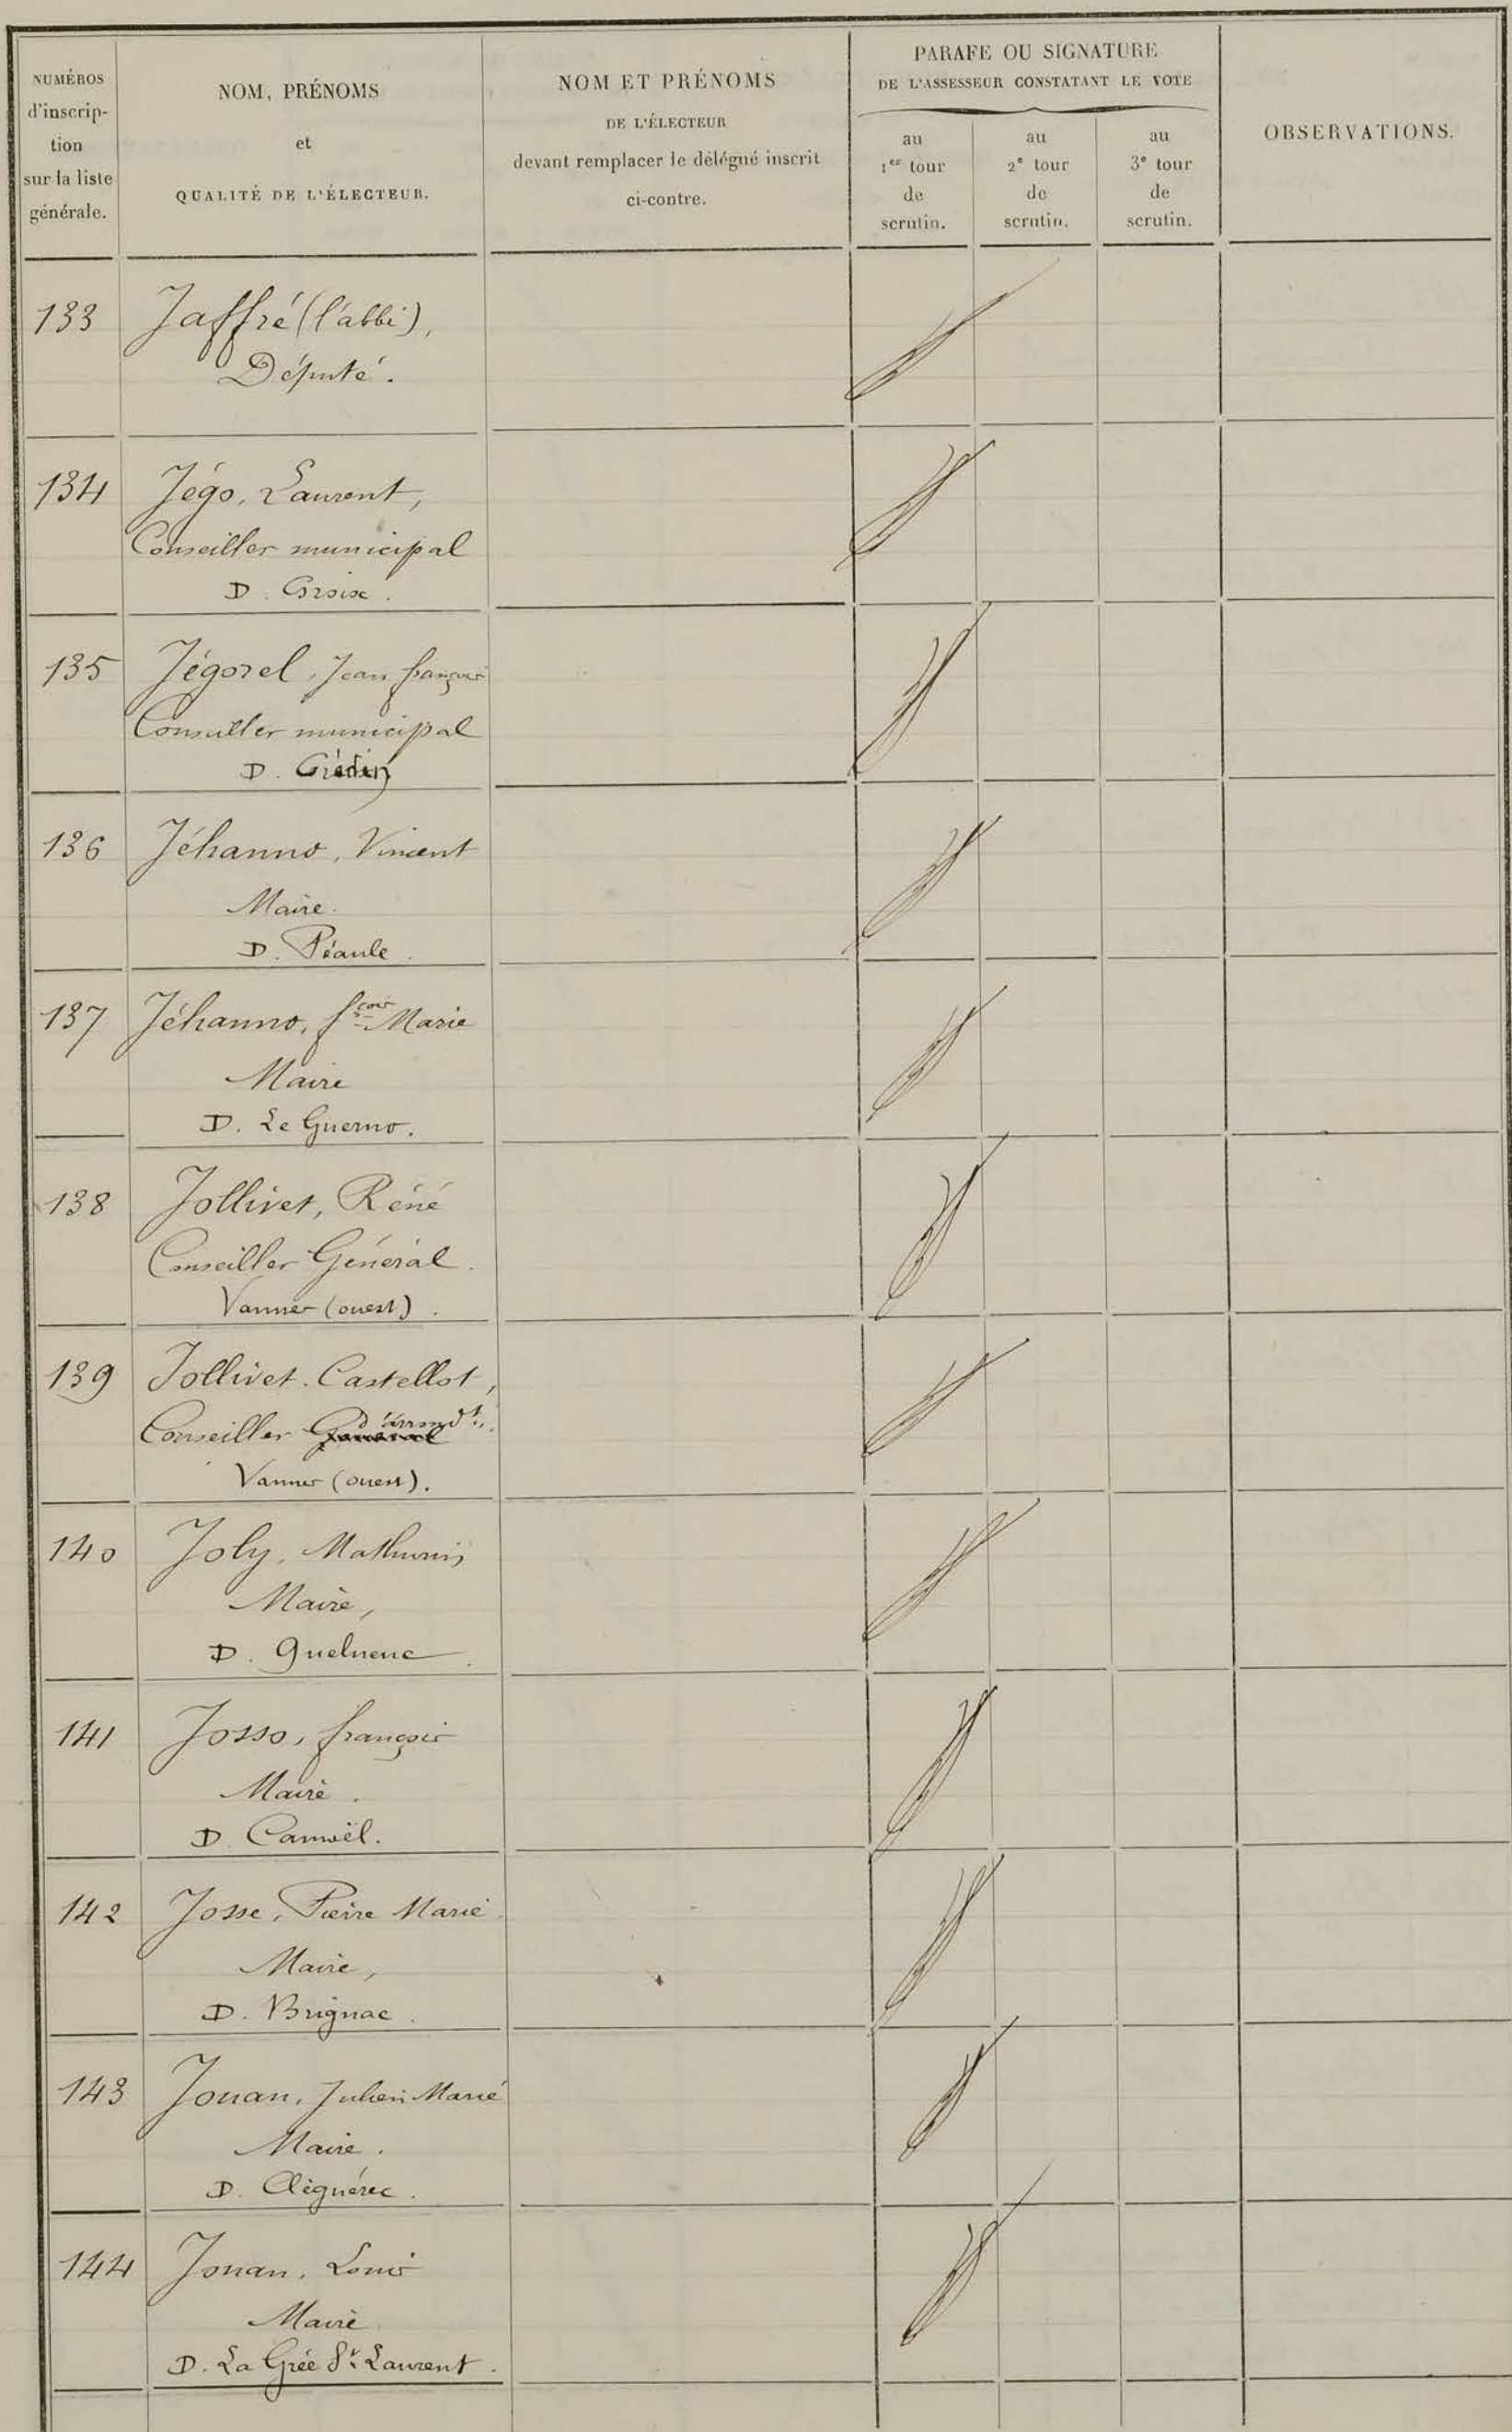 NUMÉROS
d'inscrip-
tion
sur la liste
générale.
NOM, PRÉNOMS
et
QUALITÉ DE L'ÉLECTEUR.
NOM ET PRÉNOMS
DE L'ÉLECTEUR
devant remplacer le délégué inscrit
ci-contre.
PARAFE OU SIGNATURE
DE L'ASSESSEUR CONSTATANT LE VOTE
au
1er tour
de
scrutin.
au
2e tour
de
scrutin.
au
3e tour
de
scrutin.
OBSERVATIONS.
133 Jaffré (l'abbé),
Député.
134 Jégo, Laurent,
Conseiller municipal
D. Groix.
135 Jégorel, Jean françois
Conseiller municipal
D. Grédin
136 Jéhanno, Vincent
Maire.
D. Péaule.
137 Jéhanno, fçois Marie
Maire
D. Le Guerno.
138 Jollivet, Réné
Conseiller Général.
Vannes (ouest).
139 Jollivet-Castellot,
Conseiller Général d'arrondt.
Vannes (ouest).
140 Joly, Mathurin
Maire,
D. Quelneuc.
141 Josso, françois
Maire.
D. Camoël.
142 Josse, Pierre Marie
Maire,
D. Brignac.
143 Jouan, Julien Marie
Maire.
D. Cléguérec.
144 Jouan, Louis
Maire
D. La Grée St Laurent.